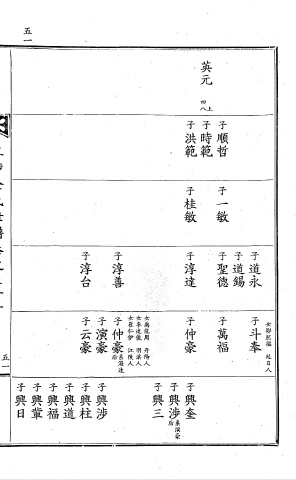 五一
英元 上四八
子順哲
子時範
子洪範
子一敏
子桂敏
子道永
子道錫
子聖德
子淳達
子淳善
子淳台
子斗奉
子萬福
子仲豪
子仲豪 系淳達后
子演豪
子云豪
子興奎
子興涉 系演豪后
子興三
子興涉
子興柱
子興道
子興福
子興輩
子興日
五一